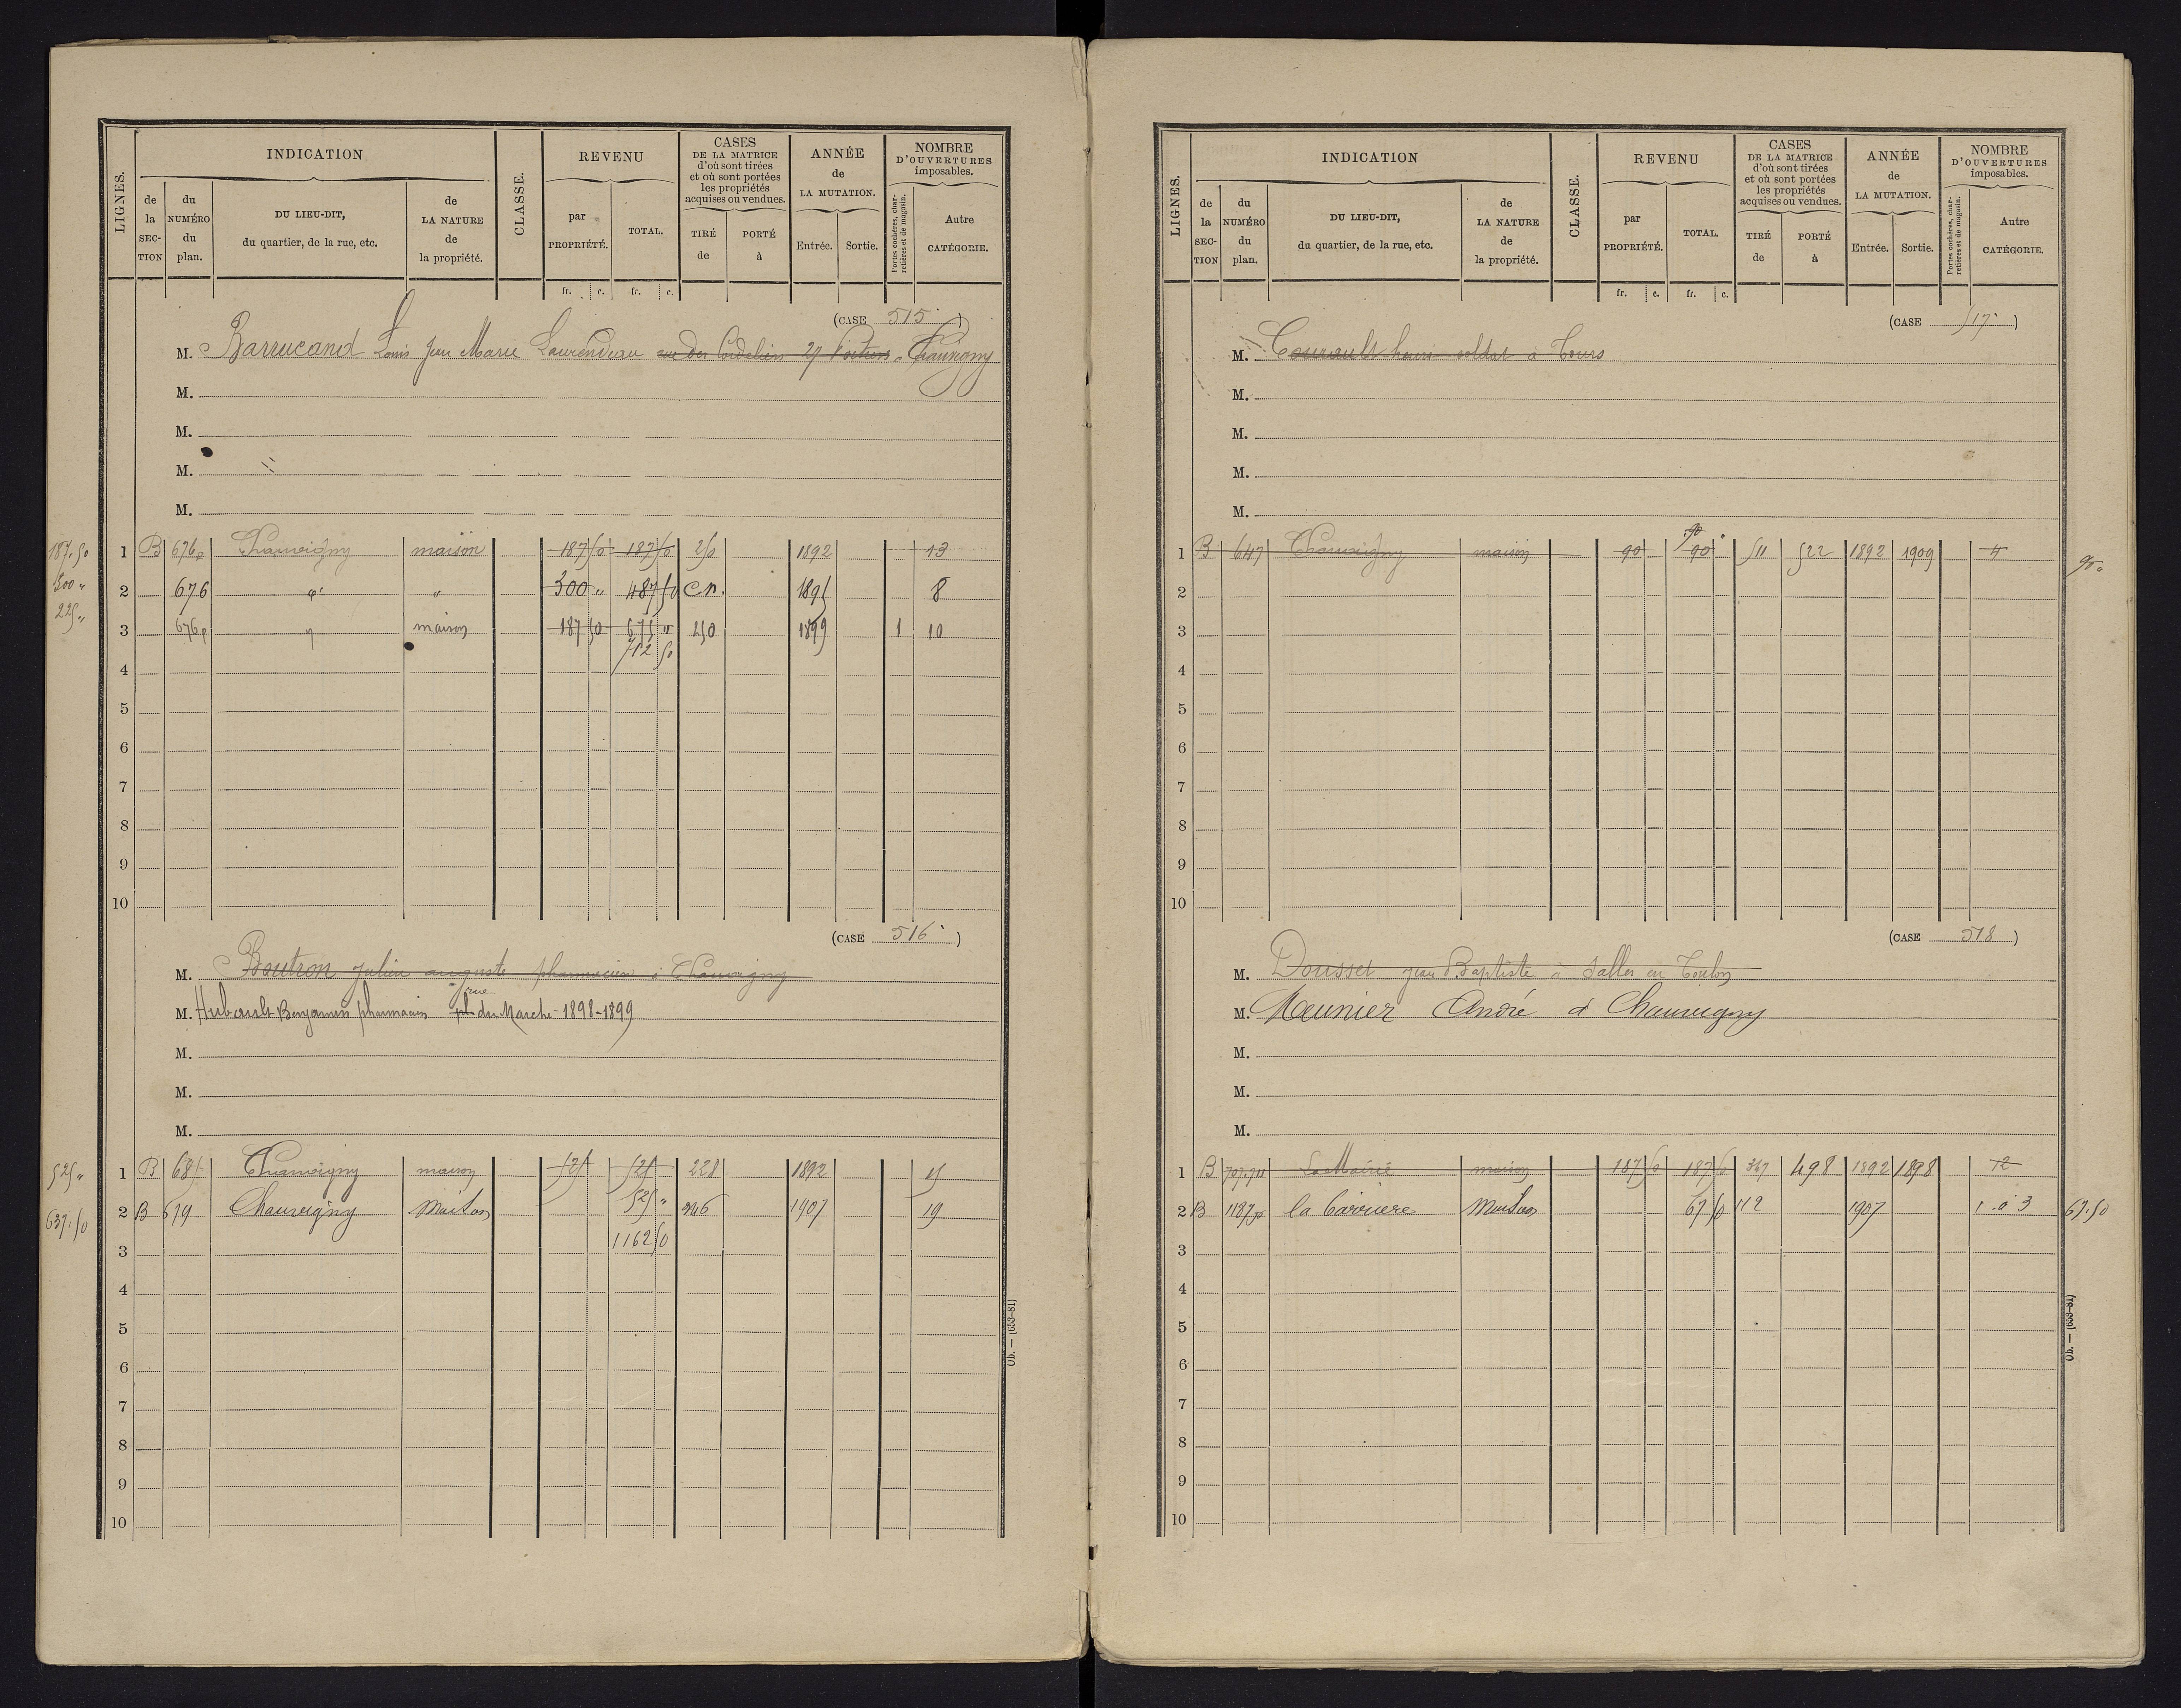 LIGNES.
INDICATION
de la SECTION
du NUMÉRO du plan.
DU LIEU-DIT, du quartier, de la rue, etc.
de LA NATURE de la propriété.
CLASSE.
REVENU
par PROPRIÉTÉ.
TOTAL.
fr. c. fr. c.
CASES DE LA MATRICE d'où sont tirées et où sont portées les propriétés acquises ou vendues.
TIRÉ de
PORTÉ à
ANNÉE de LA MUTATION.
Entrée. Sortie.
NOMBRE D'OUVERTURES imposables.
Portes cochères, charretières et de magasin.
Autre CATÉGORIE.
(CASE 515)
M. Barrucand Louis Jean Marie Laurendeau rue des Cordeliers 27 Poitiers à Chauvigny
M.
M.
M.
M.
187.50 1 B 676p Chauvigny maison 187 50 187 50 250 1892 13
300 " 2 676 d° " 300 " 487 50 C.n. 1895 8
225 " 3 676p " maison 187 50 675 " 250 1899 1 10
712 50
4
5
6
7
8
9
10
(CASE 516)
M. Boutron Julien auguste pharmacien à Chauvigny
rue
M. Hubault Benjamin pharmacien pl du Marché - 1898-1899
M.
M.
M.
525 " 1 B 685 Chauvigny maison 525 525 228 1892 15
637.50 2 B 679 Chauvigny Maison 525 " 246 1907 19
1162 50
3
4
5
6
7
8
9
10
Ob. — (653-81)
LIGNES.
INDICATION
de la SECTION
du NUMÉRO du plan.
DU LIEU-DIT, du quartier, de la rue, etc.
de LA NATURE de la propriété.
CLASSE.
REVENU
par PROPRIÉTÉ.
TOTAL.
fr. c. fr. c.
CASES DE LA MATRICE d'où sont tirées et où sont portées les propriétés acquises ou vendues.
TIRÉ de
PORTÉ à
ANNÉE de LA MUTATION.
Entrée. Sortie.
NOMBRE D'OUVERTURES imposables.
Portes cochères, charretières et de magasin.
Autre CATÉGORIE.
(CASE 517)
M. soldat à Tours
M.
M.
M.
M.
90
1 B 647 Chauvigny maison 90 90 " 511 522 1892 1909 4 90 "
2
3
4
5
6
7
8
9
10
(CASE 518)
M. Dousset Jean Baptiste à Salles en Toulon
M. Meunier André à Chauvigny
M.
M.
M.
1 B La Mairie maison 187 50 187 50 367 498 1892 1898 12
2 B 1187p la Carriere Maison 67 50 112 1907 1.a 3 67.50
3
4
5
6
7
8
9
10
Ob. — (653-81)